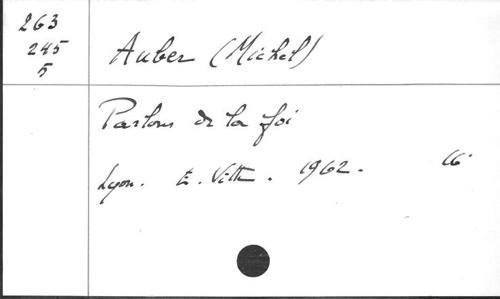 263
245
5
Auber (Michel)
Parlons de la foi
Lyon. E. Vitte. 1962. 16°